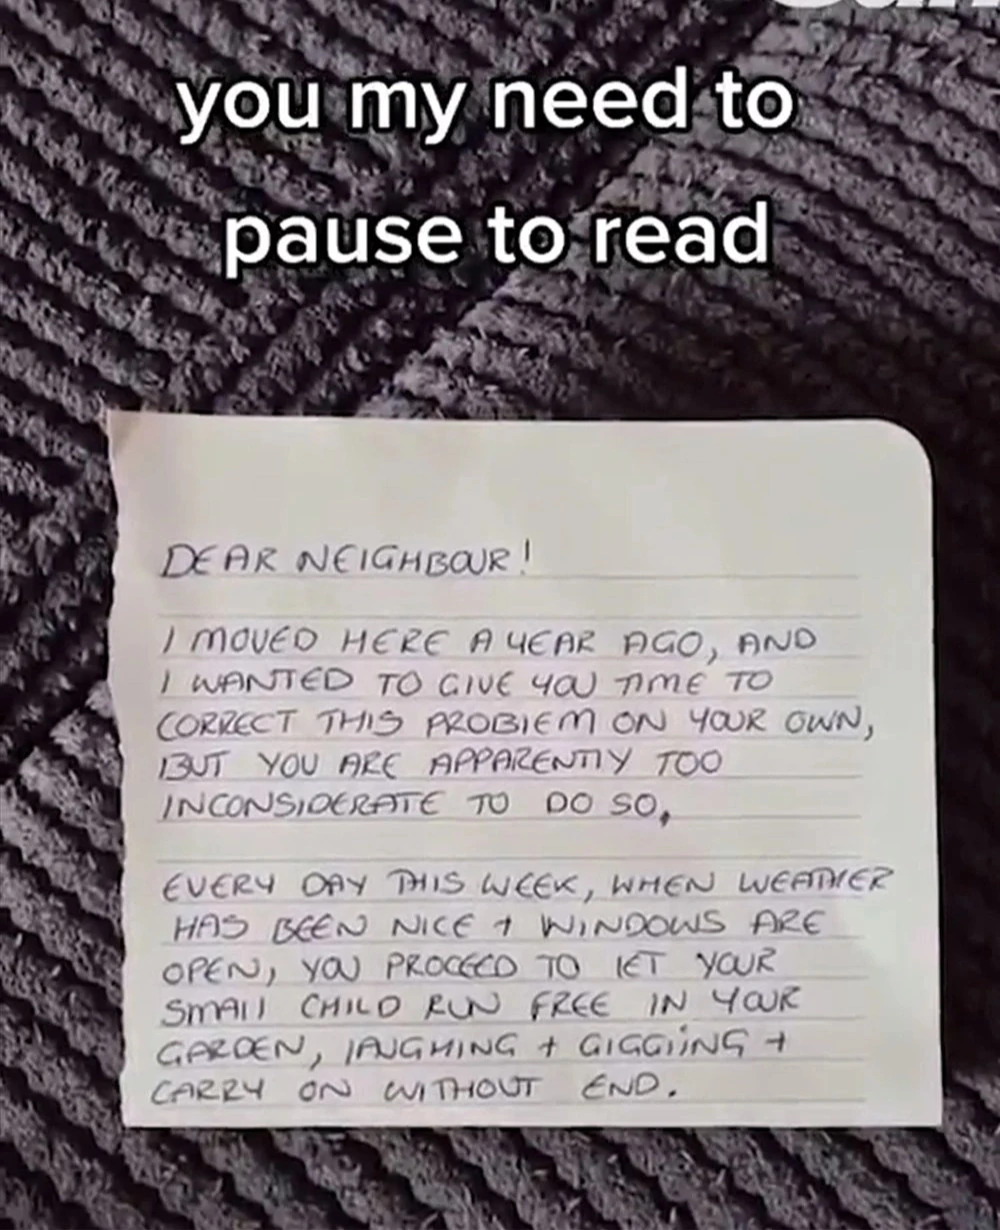 you my need to
pause to read
DEAR NEIGHBOUR!
I MOVED HERE A YEAR AGO, AND
I WANTED TO GIVE YOU TIME TO
CORRECT THIS PROBLEM ON YOUR OWN,
BUT YOU ARE APPARENTLY TOO
INCONSIDERATE TO DO SO,
EVERY DAY THIS WEEK, WHEN WEATHER
HAS BEEN NICE + WINDOWS ARE
OPEN, YOU PROCEED TO LET YOUR
SMALL CHILD RUN FREE IN YOUR
GARDEN, LAUGHING + GIGGIING +
CARRY ON WITHOUT END.